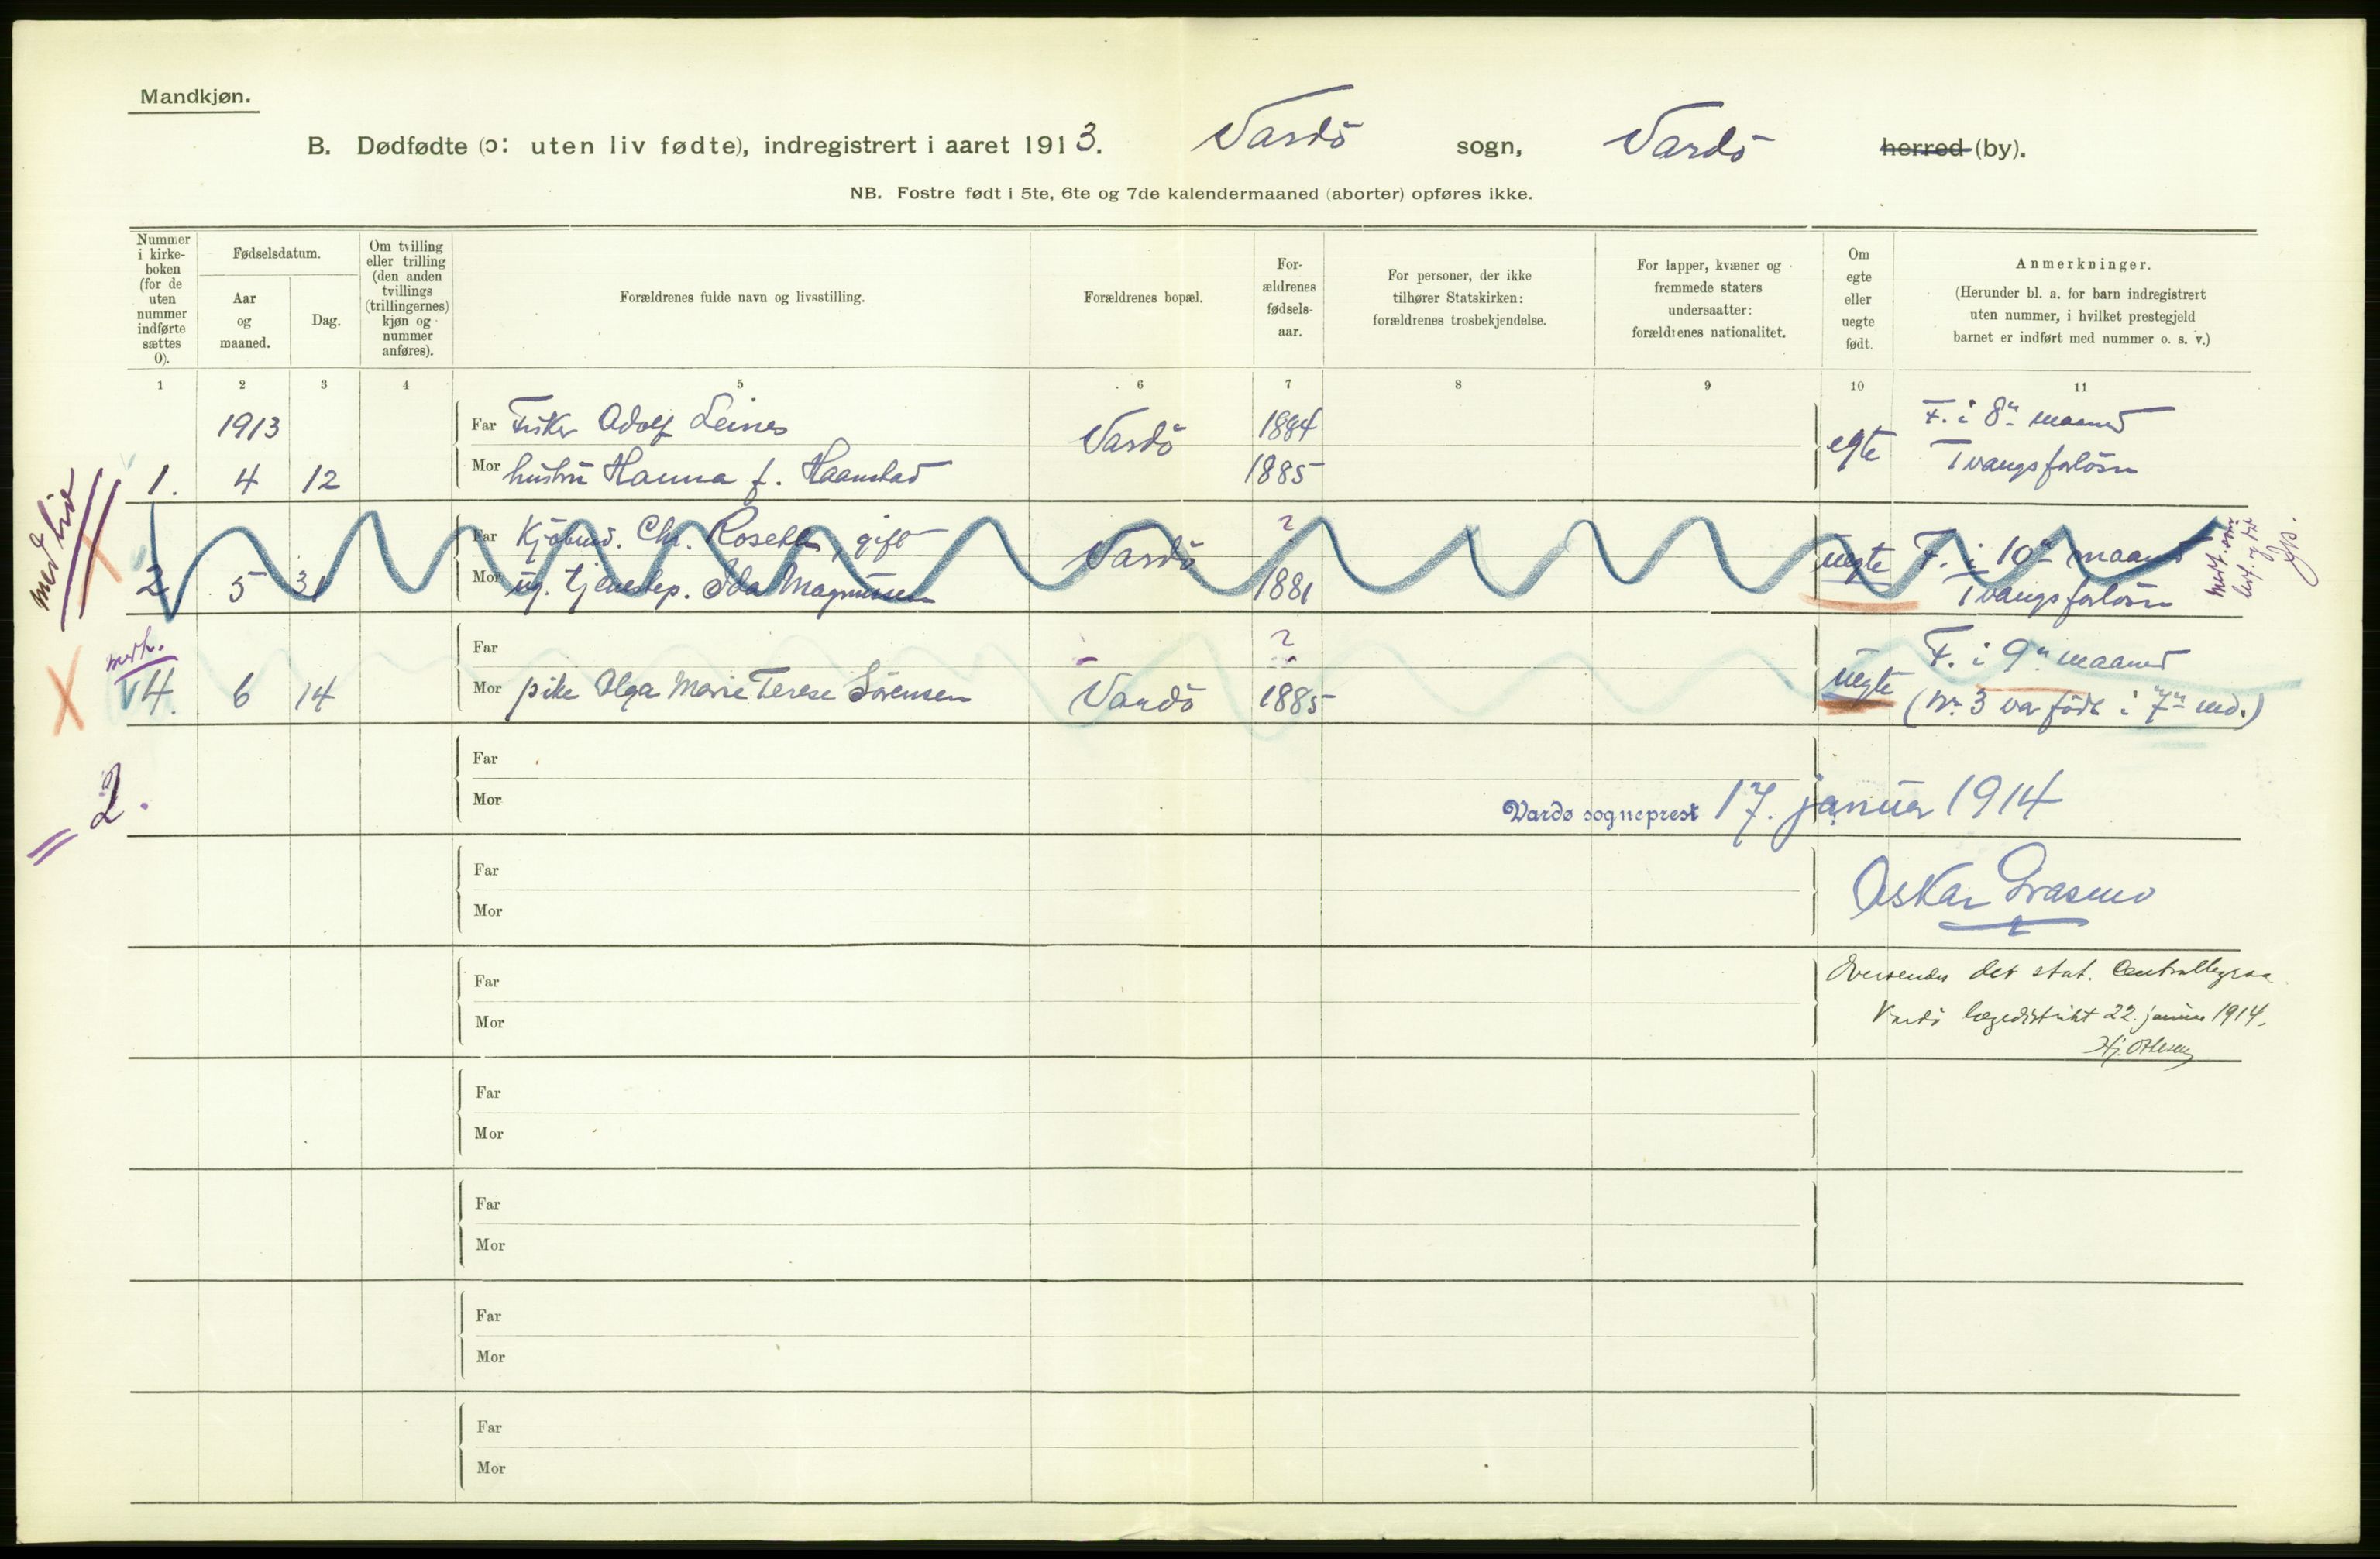 Mandkjøn.
B. Dødfødte (ɔ: uten liv fødte), indregistrert i aaret 1913. Vardö sogn, Vardö herred (by).
NB. Fostre født i 5te, 6te og 7de kalendermaaned (aborter) opføres ikke.
Nummer i kirke-boken (for de uten nummer indførte sættes 0).
Fødselsdatum.
Aar og maaned.
Dag.
Om tvilling eller trilling (den anden tvillings (trillingernes) kjøn og nummer anføres).
Forældrenes fulde navn og livsstilling.
Forældrenes bopæl.
For-ældrenes fødsels-aar.
For personer, der ikke tilhører Statskirken: forældrenes trosbekjendelse.
For lapper, kvæner og fremmede staters undersaatter: forældrenes nationalitet.
Om egte eller uegte født.
Anmerkninger.
(Herunder bl. a. for barn indregistrert uten nummer, i hvilket prestegjeld barnet er indført med nummer o. s. v.)
1 2 3 4 5 6 7 8 9 10 11
1913 Far Fisker Adolf Leines Vardö 1884 egte F. i 8n maaned
1. 4 12 Mor hustru Hanna f. Haanstad 1885 Tvangsforlösn
med liv
Far Kjöbmd. Chr. gift Vardö ? uegte F. i 10n maaned
2 5 31 Mor ug. tjenestep. Ida Magnussen 1881 Tvangsforlösn
medt. som
lev. og död
medt.
Far - ? uegte F. i 9n maaned
4. 6 14 Mor pike Olga Marie Terese Sörensen Vardö 1885 (Nr. 3 var födt i 7n md.)
= 2.
Far
Mor
Vardø sogneprest 17. januar 1914
Far
Mor
Oskar
Far
Mor
Oversendes det stat. Centralbyraa
Vardö lægedistrikt 22. januar 1914.
Hj.
Far
Mor
Far
Mor
Far
Mor
Far
Mor